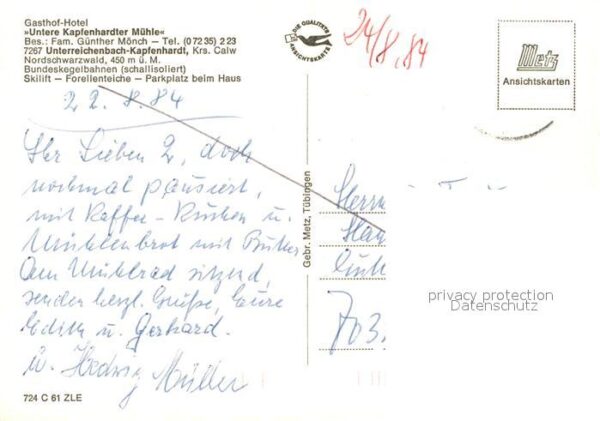 Gasthof-Hotel
»Untere Kapfenhardter Mühle«
Bes.: Fam. Günther Mönch – Tel. (0 72 35) 2 23
7267 Unterreichenbach-Kapfenhardt, Krs. Calw
Nordschwarzwald, 450 m ü. M.
Bundeskegelbahnen (schallisoliert)
Skilift – Forellenteiche – Parkplatz beim Haus
22.8.84
Ihr Lieben 2, doch
nochmal pausiert,
mit Kaffee-Kuchen u.
Mühlenbrot mit Butter
Am Mühlrad sitzend,
senden herzl. Grüße, Eure
Edith u. Gerhard.
u. Hedwig Müller
724 C 61 ZLE
DIE QUALITÄTS
ANSICHTSKARTE
Gebr. Metz, Tübingen
24/8.84
Metz
Ansichtskarten
Herrn
703
privacy protection
Datenschutz